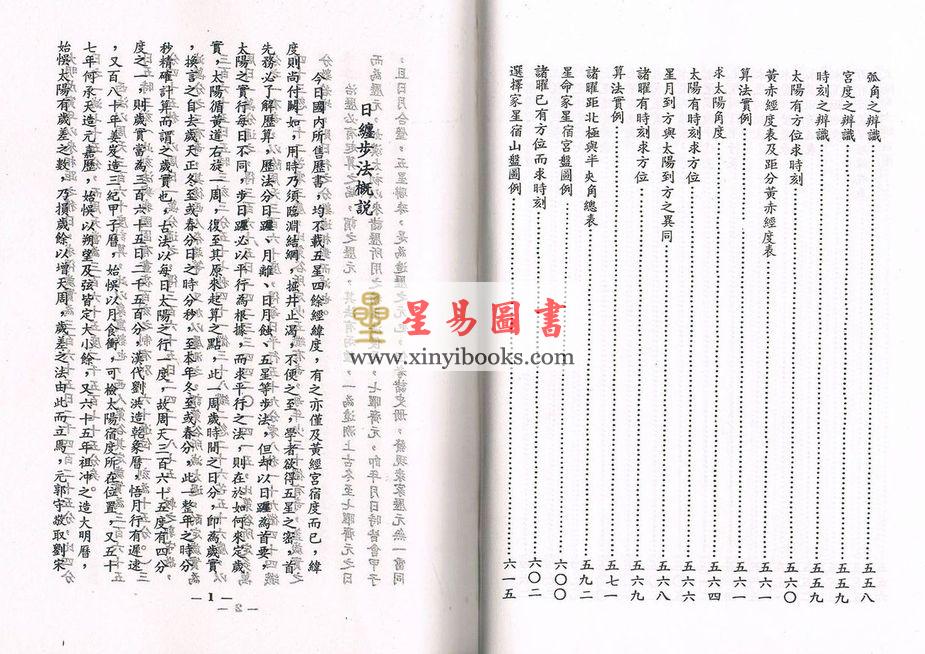 弧角之辯識………五五八
宮度之辯識………五五九
時刻之辯識………五五九
太陽有方位求時刻………五六〇
黃赤經度表及距分黃赤經度表………五六一
算法實例………五六一
求太陽角度………五六四
太陽有時刻求方位………五六六
星月到方與太陽到方之異同………五六八
諸曜有時刻求方位………五六九
算法實例………五七一
諸曜距北極與半夾角總表………五九二
星命家星宿宮盤圖例………六〇〇
諸曜已有方位而求時刻………六〇二
選擇家星宿山盤圖例………六一五
日纏步法概說
今日國內所售歷書，均不載五星四餘經緯度，有之亦僅及黃經宮宿度而已，緯
度則尚付闕如，用時乃須臨淵結網，掘井止渴，不便之至，學者欲得五星之密，首
先務必了解歷算，歷法分日躔、月離、日月蝕、五星等步法，但却以日躔為首要，
太陽之實行每日不同，步日躔必以平行為根據，而求平行之法，則在於如何來定歲
實，太陽循黃道右旋一周，復至其原來起算之點，此一周歲時間之日分，即為歲實
，換言之自去歲天正冬至或春分日之時分秒，至本年冬至或春分，此一整年之時分
秒精確計算而謂之歲實也，古法以每日太陽之行一度，故周天三百六十五度有四分
度之一，則歲實當為三百六十五日二千五百分，漢代劉洪造乾象曆，悟月行有遲速
，又百八十年姜岌造三紀甲子曆，始悞以月食衝，可檢太陽宿度所在位置，又五十
七年何承天造元嘉歷，始悞以朔望及弦皆定大小餘，又六十五年祖冲之造大明曆，
始悞太陽有歲差之數，乃損歲餘以增天周，歲差之法由此而立焉，元郭守敬取劉宋
—1—
星易圖書
www.xinyibooks.com